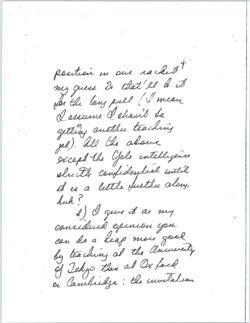 position in our racket &
my guess is that'll do it
for the long pull (I mean
I assume I shan't be
getting another teaching
job). All the above
except the Yale intelligence
strictly confidential until
it is a little further along,
huh?
2) I give it as my
considered opinion you
can do a heap more good
by teaching at the University
of Tokyo than at Oxford
or Cambridge: the invitation